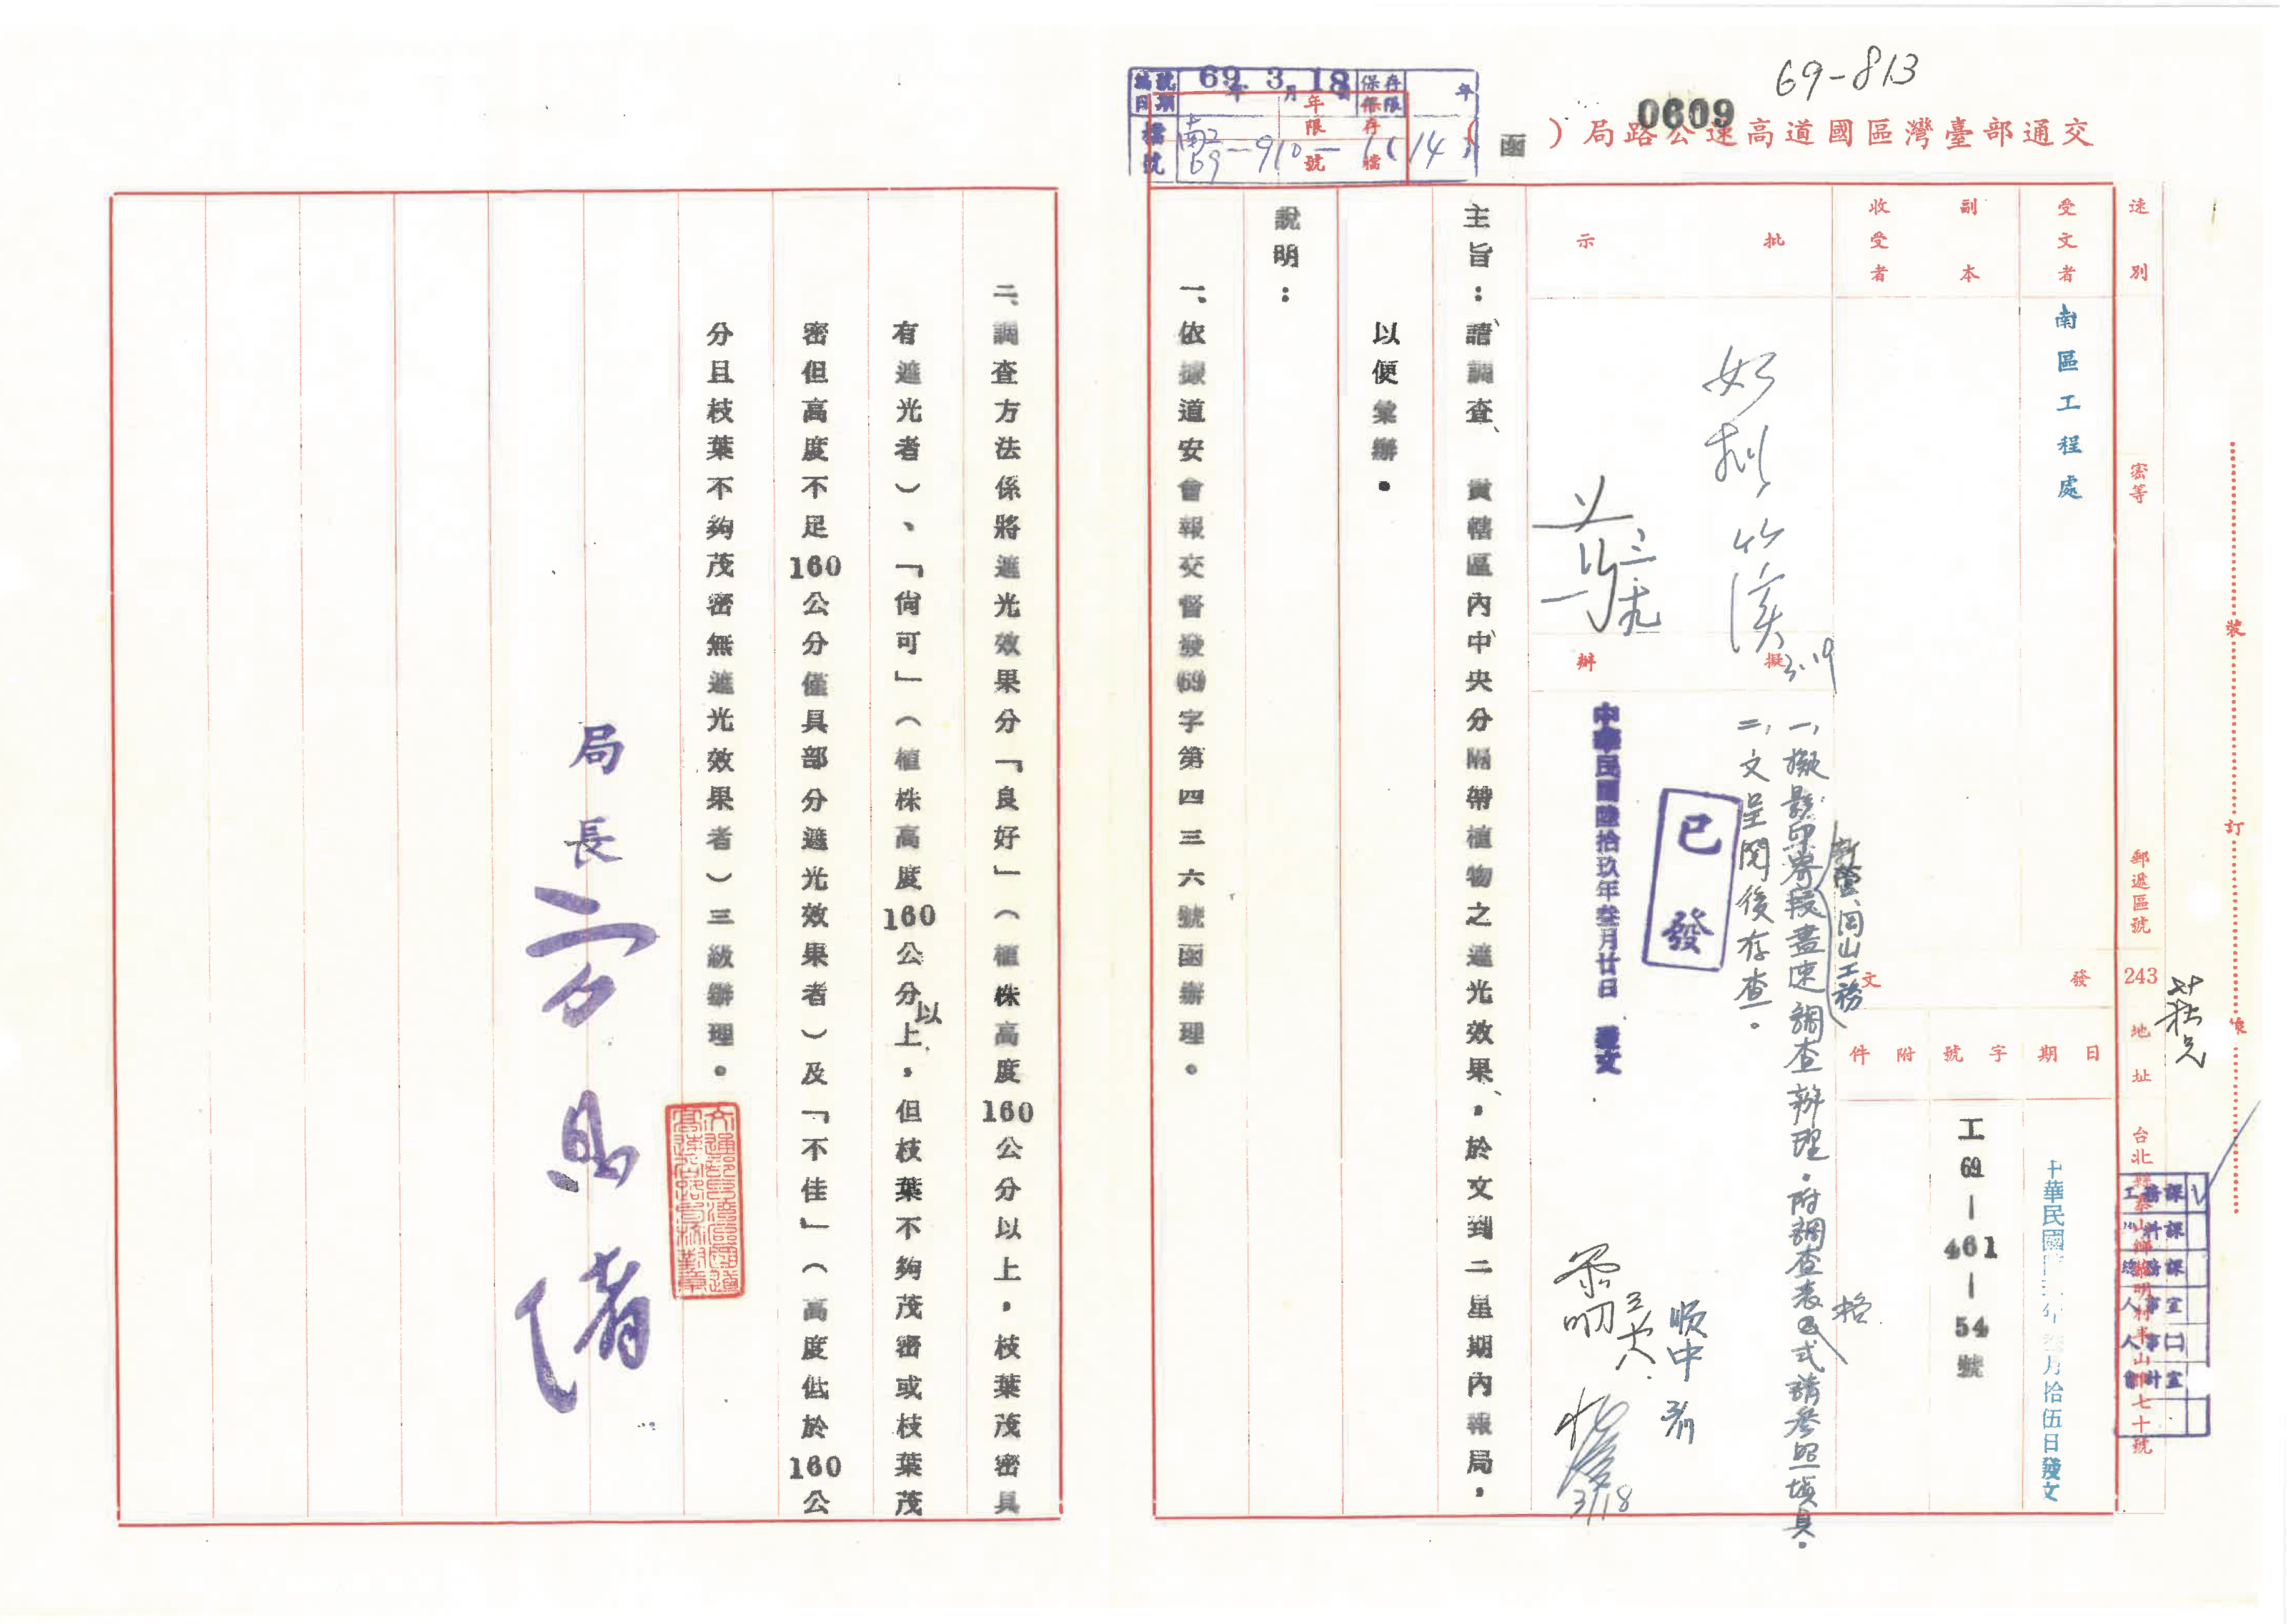 69-813
0609
交通部臺灣區國道高速公路局(函)
編號
日期
69年3月18日
保存
年限
年
檔號
南工
69-910-1(14)
年限
存
號
檔
速別
密等
郵遞區號
243
地址
台北縣泰山鄉黎明村半山雅七十號
裝
訂
線
工務課
材料課
總務課
人事室
人事㈡
會計室
受文者
南區工程處
副本
收受者
發文
日期
字號
附件
中華民國陸玖年叁月拾伍日發文
工69—461—54號
批示
如擬
3.19
擬辦
一、擬影印寄新營、岡山工務段盡速調查辦理。附調查表格式請參照填具。
二、文呈閱後存查。
已發
中華民國陸拾玖年叁月廿日 發文
3/18
主旨:請調查 貴轄區內中央分隔帶植物之遮光效果,於文到二星期內報局,
以便彙辦。
說明:
一、依據道安會報交督發(69)字第四三六號函辦理。
二、調查方法係將遮光效果分「良好」(植株高度160公分以上,枝葉茂密具
有遮光者)、「尚可」(植株高度160公分以上,但枝葉不夠茂密或枝葉茂
密但高度不足160公分僅具部分遮光效果者)及「不佳」(高度低於160公
分且枝葉不夠茂密無遮光效果者)三級辦理。
局長
交通部臺灣區國道
高速公路局校對章